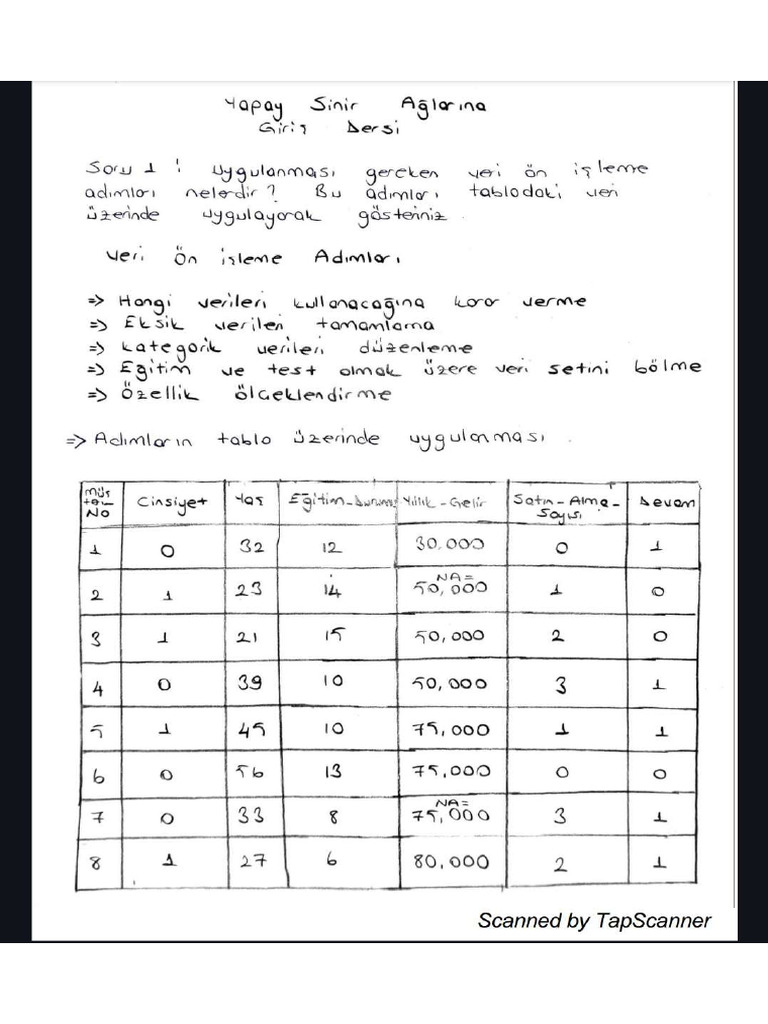 Yapay Sinir Ağlarına
Giriş Dersi
Soru 1 : Uygulanması gereken veri ön işleme
adımları nelerdir? Bu adımları tablodaki veri
üzerinde uygulayarak gösteriniz.
Veri Ön işleme Adımları
=> Hangi verileri kullanacağına karar verme
=> Eksik verileri tamamlama
=> Kategorik verileri düzenleme
=> Eğitim ve test olmak üzere veri setini bölme
=> Özellik ölçeklendirme
=> Adımların tablo üzerinde uygulanması.
müş
No Cinsiyet Yaş Eğitim-Durumu Yıllık-Gelir Satın-Alma-Sayısı Devam
1 0 32 12 30.000 0 1
2 1 23 14 NA= 50,000 1 0
3 1 21 15 50,000 2 0
4 0 39 10 50,000 3 1
5 1 45 10 75,000 1 1
6 0 56 13 75,000 0 0
7 0 33 8 NA= 75,000 3 1
8 1 27 6 80,000 2 1
Scanned by TapScanner